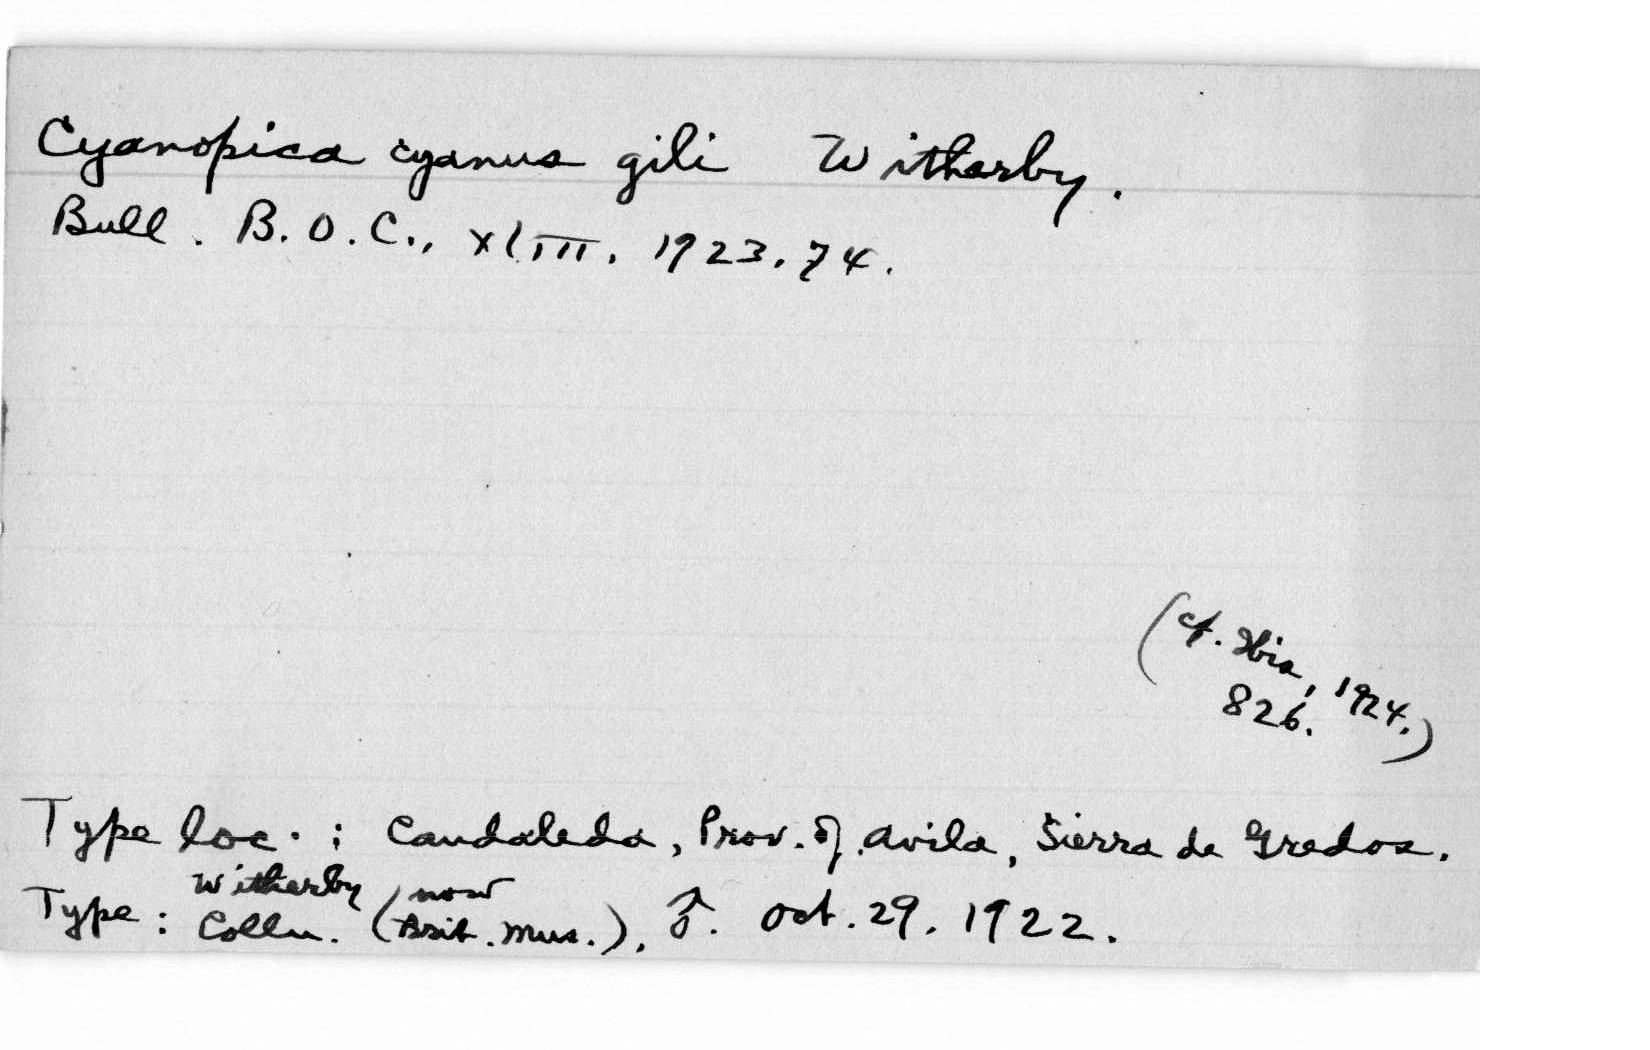 Cyanopica cyanus gili Witherby.
Bull. B.O.C., XLIII, 1923, 74.
(cf. Ibis, 1924,
826.)
Type loc.: Candaleda, Prov. of Avila, Sierra de Gredos.
Type: Witherby Colln. (now Brit. Mus.), ♂. Oct. 29, 1922.